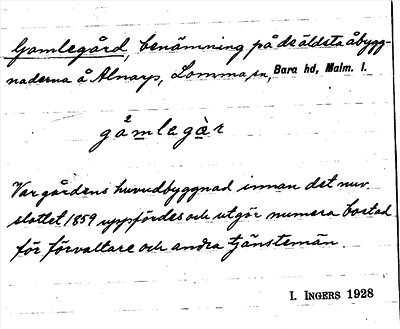 Gamlegård, benämning på de äldsta åbygg-
naderna å Alnarp, Lomma sn, Bara hd, Malm. l.
gåmlegàr
Var gårdens huvudbyggnad innan det nuv.
slottet 1859 uppfördes och utgör numera bostad
för förvaltare och andra tjänstemän.
I. INGERS 1928